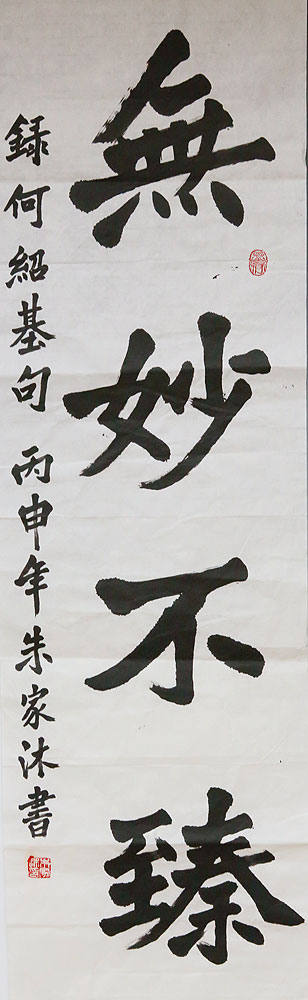 無妙不臻
録何紹基句 丙申年朱家沐書